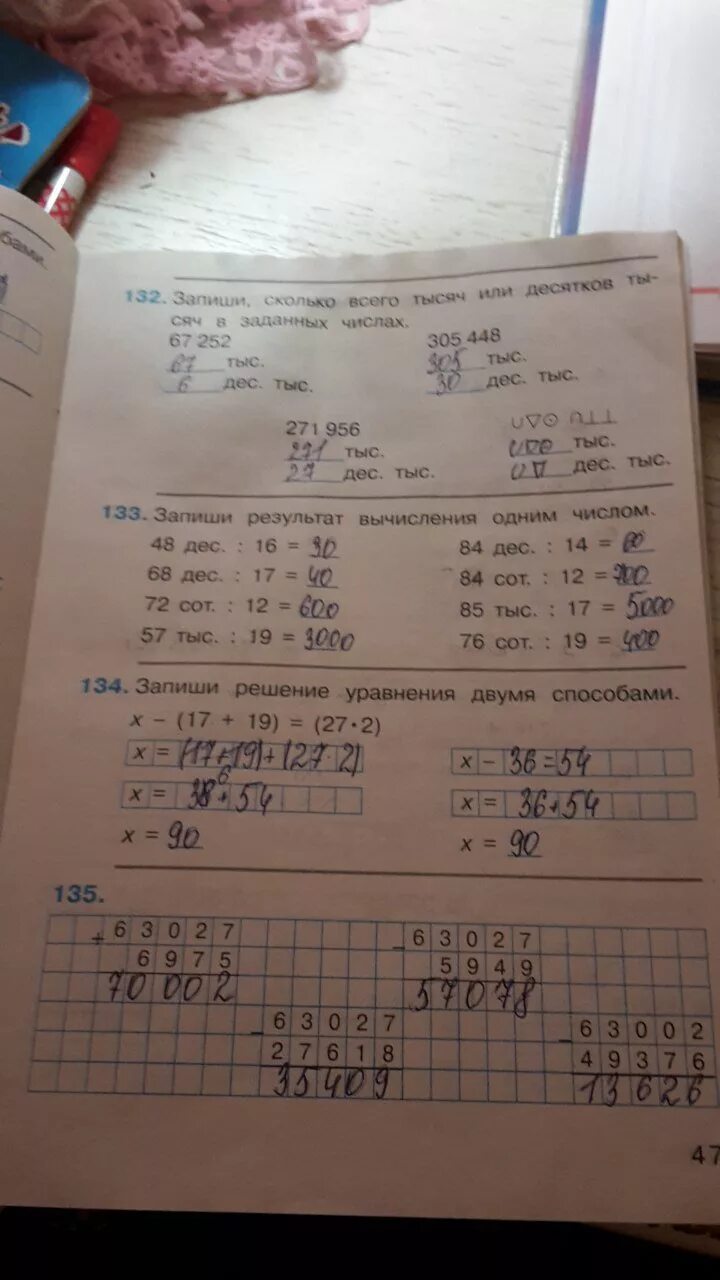 бами.
132. Запиши, сколько всего тысяч или десятков ты-
сяч в заданных числах.
67 252 305 448
67 тыс. 305 тыс.
6 дес. тыс. 30 дес. тыс.
271 956 ∪▽⊙ ∩⊥⊥
271 тыс. ∪▽⊙ тыс.
27 дес. тыс. ∪▽ дес. тыс.
133. Запиши результат вычисления одним числом.
48 дес. : 16 = 30 84 дес. : 14 = 60
68 дес. : 17 = 40 84 сот. : 12 = 700
72 сот. : 12 = 600 85 тыс. : 17 = 5000
57 тыс. : 19 = 3000 76 сот. : 19 = 400
134. Запиши решение уравнения двумя способами.
x − (17 + 19) = (27 · 2)
x = (17+19)+(27·2) x − 36=54
x = 36+54 x = 36+54
x = 90 x = 90
135.
+ 63027 − 63027
6975 5949
70002 57078
− 63027 − 63002
27618 49376
35409 13626
47